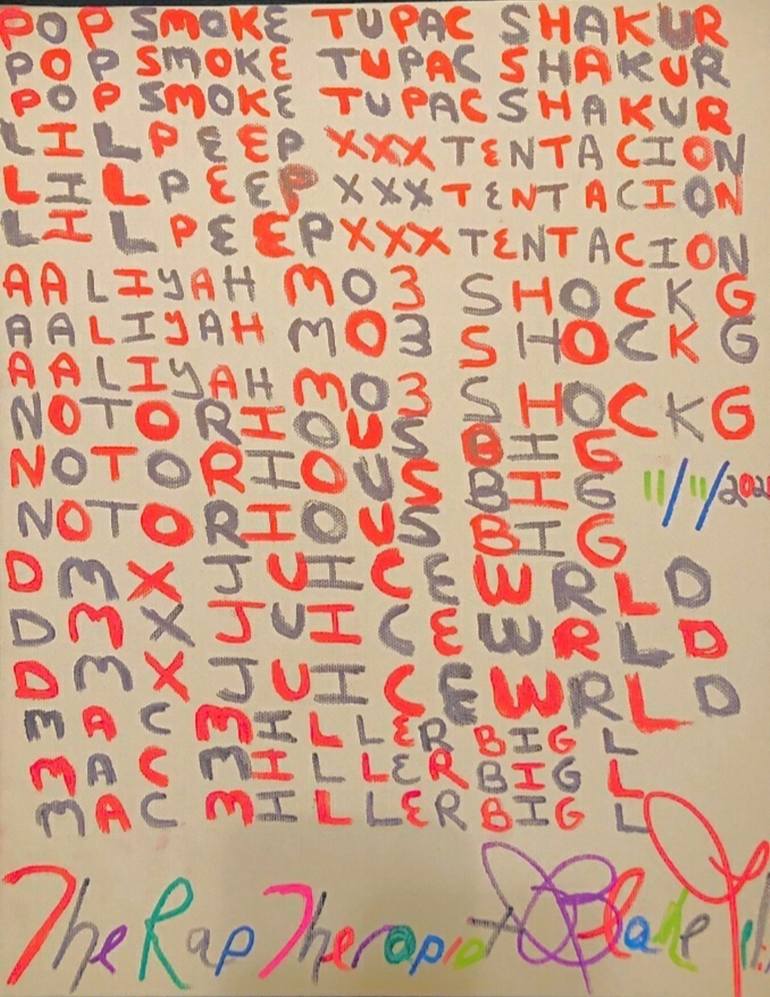 POP SMOKE TUPAC SHAKUR
POP SMOKE TUPAC SHAKUR
POP SMOKE TUPAC SHAKUR
LIL PEEP XXXTENTACION
LIL PEEP XXXTENTACION
LIL PEEP XXXTENTACION
AALIYAH MO3 SHOCK G
AALIYAH MO3 SHOCK G
AALIYAH MO3 SHOCK G
NOTORIOUS BIG
NOTORIOUS BIG 11/11/202
NOTORIOUS BIG
DMX JUICE WRLD
DMX JUICE WRLD
DMX JUICE WRLD
MAC MILLER BIG L
MAC MILLER BIG L
MAC MILLER BIG L
The Rap Therapist Blake